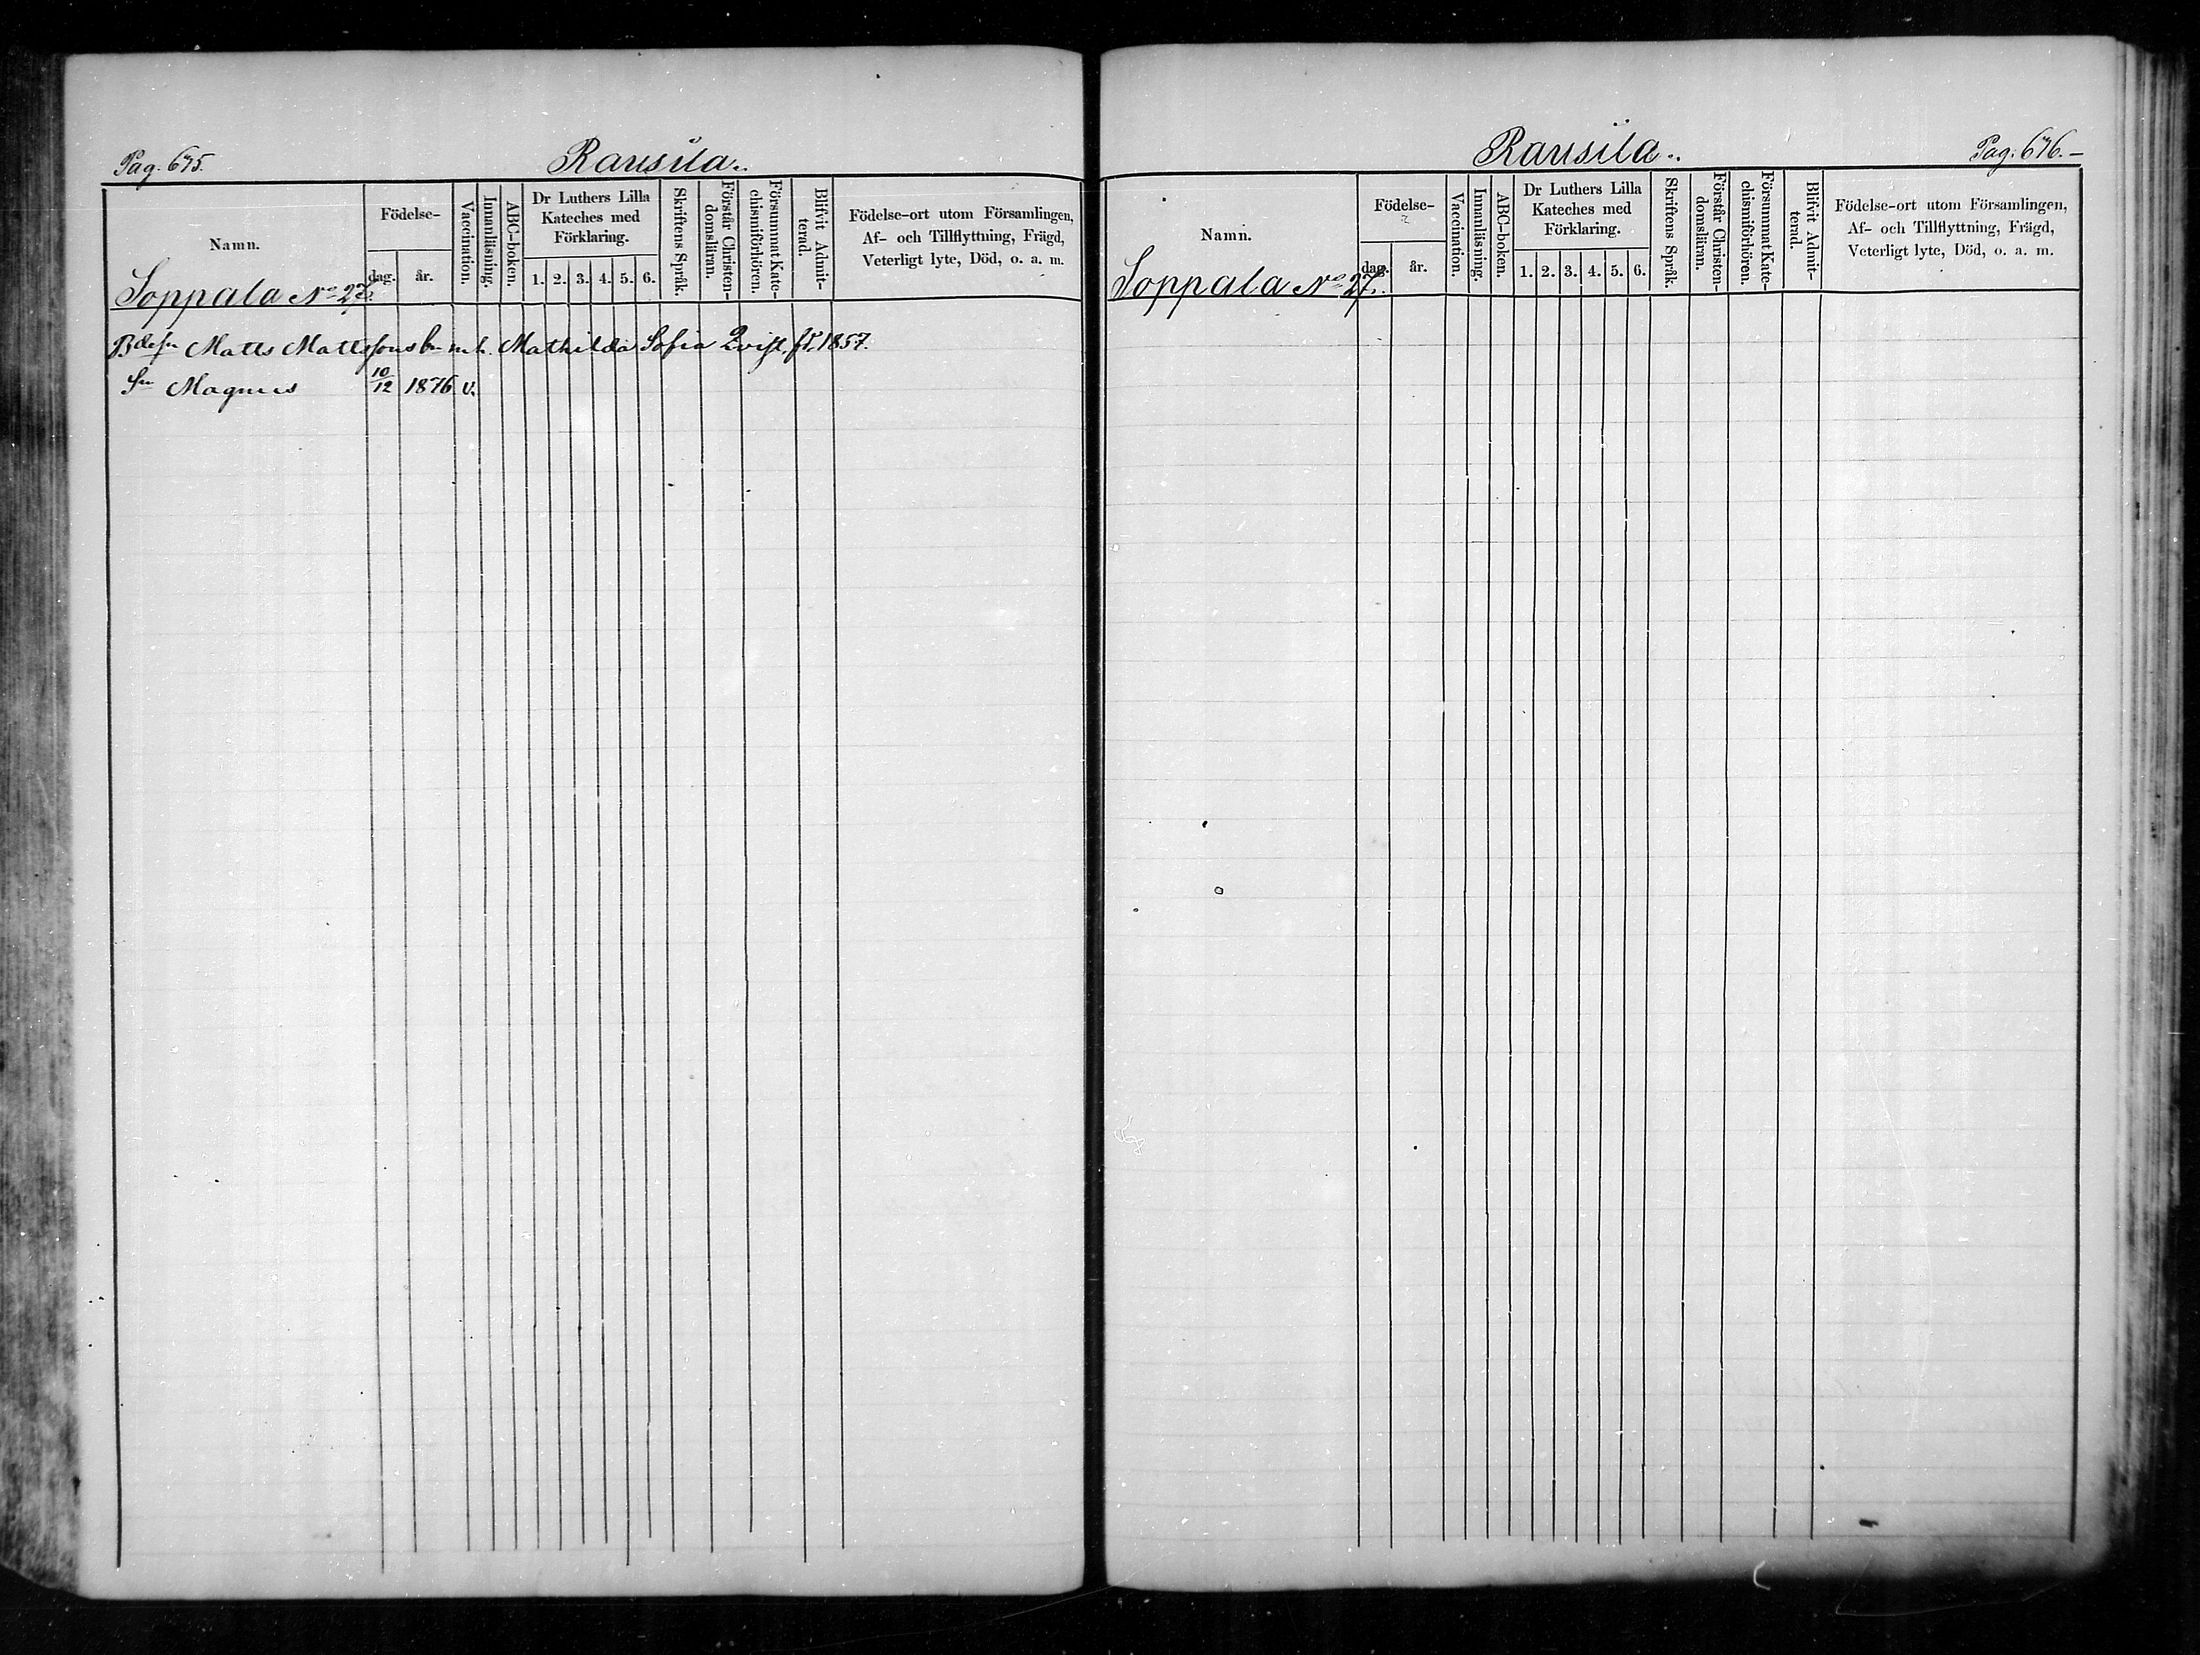 Pag. 675.
Rausila.
Namn.
Födelse-
dag.
år.
Vaccination.
Innanläsning.
ABC-boken.
Dr Luthers Lilla
Kateches med
Förklaring.
1. 2. 3. 4. 5. 6.
Skriftens Språk.
Förstår Christen-
domsläran.
Försummat Kate-
chismiförhören.
Blifvit Admit-
terad.
Födelse-ort utom Församlingen,
Af- och Tillflyttning, Frägd,
Veterligt lyte, Död, o. a. m.
Soppala No 27.
Matts Mattssons m. h. Mathilda Sofia Qvist, 1857.
Sn Magnus 10/12 1876 v.
Rausila.
Pag. 676.
Namn.
Födelse-
dag.
år.
Vaccination.
Innanläsning.
ABC-boken.
Dr Luthers Lilla
Kateches med
Förklaring.
1. 2. 3. 4. 5. 6.
Skriftens Språk.
Förstår Christen-
domsläran.
Försummat Kate-
chismiförhören.
Blifvit Admit-
terad.
Födelse-ort utom Församlingen,
Af- och Tillflyttning, Frägd,
Veterligt lyte, Död, o. a. m.
Soppala No 27.